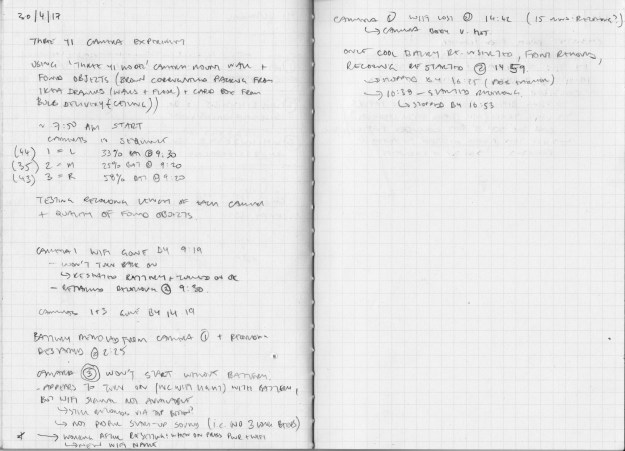 30/4/17
THREE YI CAMERA EXPERIMENT
USING 'THREE YI WIDER' CAMERA MOUNT WITH +
FOUND OBJECTS (BROWN CORRUGATED PACKING FROM
IKEA DRAWERS (WALLS + FLOOR) + CARD BOX FROM
BULB DELIVERY (CEILING))
~ 7:50 AM START
CAMERAS IN SEQUENCE
(44) 1 = L 33% BAT @ 9:30
(35) 2 = M 25% BAT @ 9:20
(43) 3 = R 58% BAT @ 9:20
TESTING RECORDING LENGTH OF EACH CAMERA
+ QUALITY OF FOUND OBJECTS.
CAMERA 1 WIFI GONE BY 9:19
- WON'T TURN BACK ON
↳ RESEATED BATTERY + TURNED ON OK
- RESTARTED RECORDING @ 9:30.
CAMERAS 1+3 GONE BY 14 19
BATTERY REMOVED FROM CAMERA ① + RECORDING
RESTARTED @ 2:25
CAMERA ③ WON'T START WITHOUT BATTERY.
- APPEARS TO TURN ON (INC WIFI LIGHT) WITH BATTERY,
BUT WIFI SIGNAL NOT AVAILABLE
↳ STILL RECORDS VIA TOP BUTTON?
↳ NOT PROPER START-UP SOUND (I.E. NO 3 LONG BEEPS)
* → WORKING AFTER RESETTING WHEN ON PRESS PWR + WIFI
↳ NEW WIFI NAME
CAMERA ① WIFI LOST @ 14:42 (15 MINS RECORDING?)
↳ CAMERA BODY V. HOT
ONCE COOL BATTERY RE-INSERTED, FRONT REMOVED,
RECORDING RE-STARTED @ 14 59.
↳ STOPPED BY 16:25
↳ 16:38 - STARTED RECORDING
↳ STOPPED BY 16:53